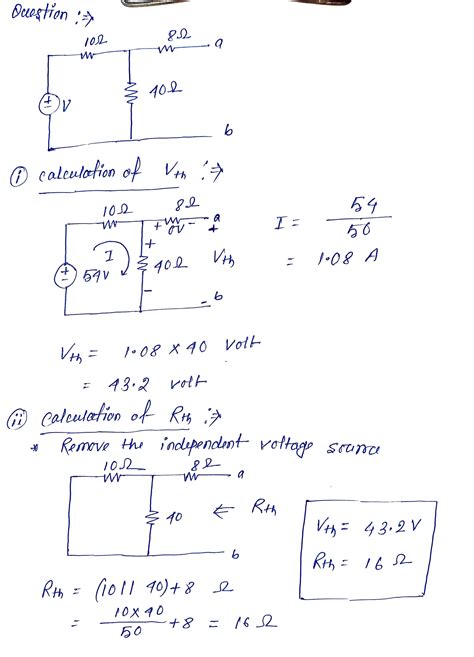 Question :→
10Ω 8Ω a
V 40Ω
b
(i) calculation of Vth :→
10Ω 8Ω a
+ 0V - +
I = 54/50
I + 40Ω Vth
54V
= 1.08 A
- - b
Vth = 1.08 × 40 volt
= 43.2 volt
(ii) calculation of Rth :→
* Remove the independent voltage source
10Ω 8Ω a
40 ← Rth
b
Vth = 43.2V
Rth = 16 Ω
Rth = (10 || 40) + 8 Ω
= 10×40/50 + 8 = 16 Ω